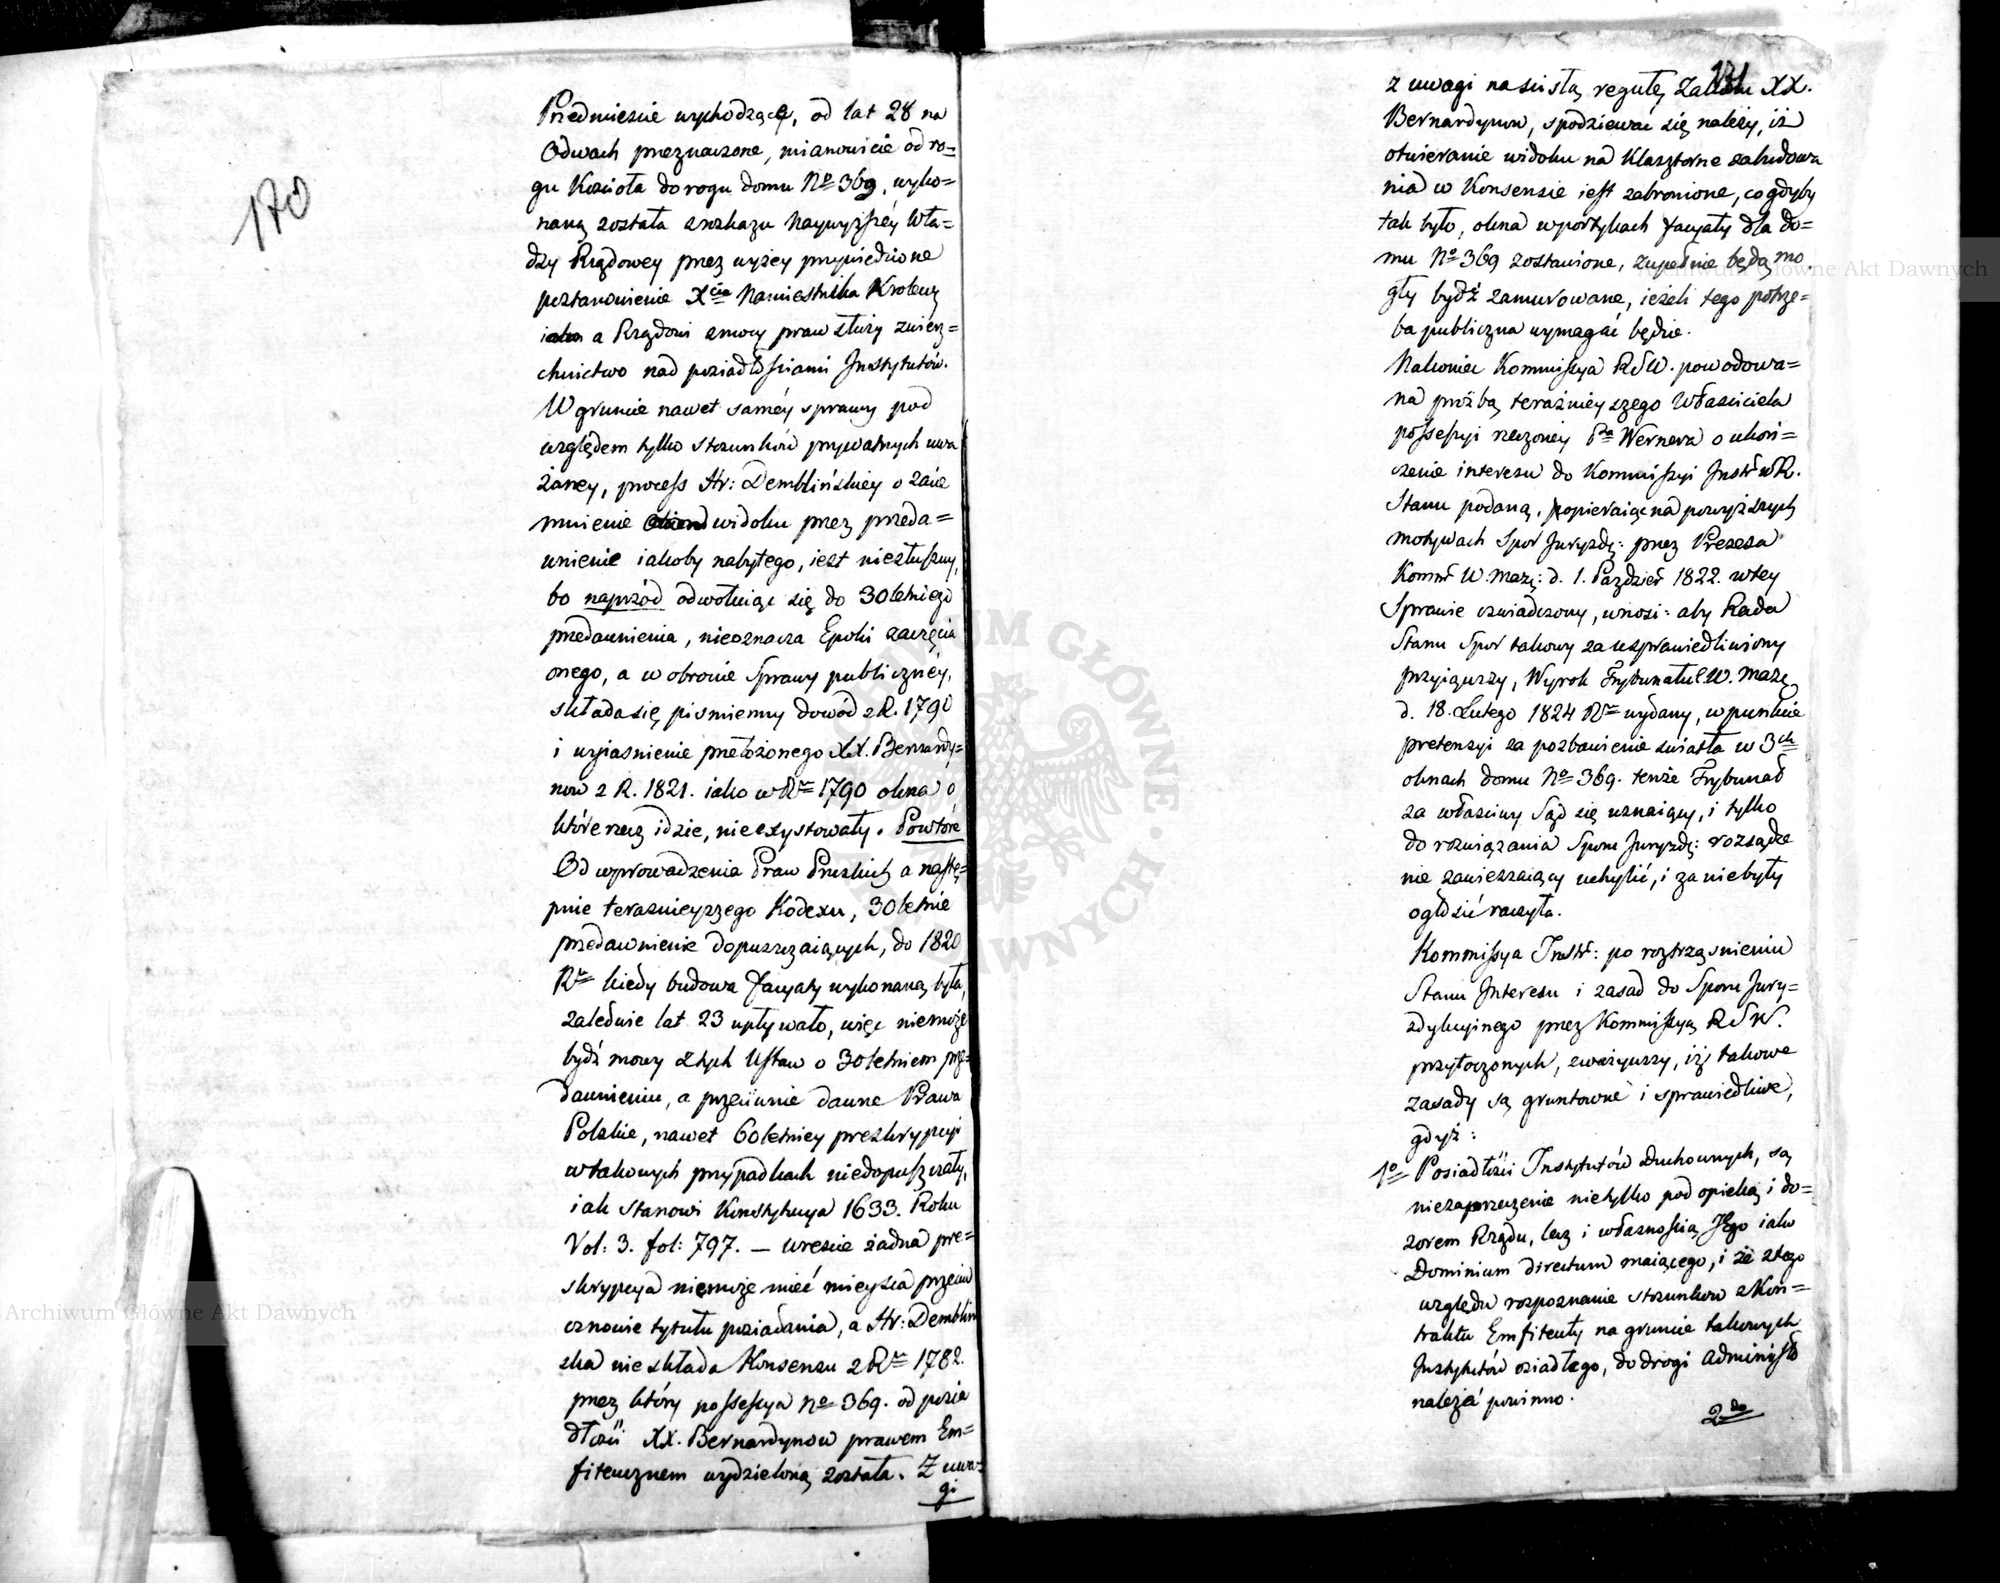 170
Przedmieście wychodzące, od lat 28 na
Odwach przeznaczone, mianowicie od ro=
gu Kościoła do rogu domu No 369, wyko=
naną została z rozkazu Naywyższéy Wła=
dzy Rządowey przez wyżey przywiedzione
postanowienie Xcia Namiestnika Krolewsk
iako a Rządowi z mocy praw służy zwierz=
chnictwo nad posiadłościami Instytutów.
W gruncie nawet saméy sprawy pod
względem tylko stosunków prywatnych uwa
żaney, process Hr: Demblińskiey o zaćie
mnienie widoku przez przeda=
wnienie iakoby nabytego, iest niesłuszny,
bo naprzód odwołuiąc się do 30letniego
przedawnienia, nieoznacza Epoki zaczęcia
onego, a w obronie Sprawy publicznéy,
składa się piśmienny dowód z R. 1790
i wyiaśnienie przełożonego XX. Bernardy=
now z R. 1821. iako w Rku 1790 okna o
które rzecz idzie, nieexystowały. Powtóre
Od wprowadzenia Praw Pruskich a nastę=
pnie teraznieyszego Kodexu, 30letnie
przedawnienie dopuszczaiących, do 1820
Rku kiedy budowa facyaty wykonaną była,
zaledwie lat 23 upływało, więc niemoże
bydź mowy z tych Ustaw o 30letniem prze=
dawnieniu, a przeciwnie dawne Prawa
Polskie, nawet 60letniey preskrypcyi
w takowych przypadkach niedopuszczały,
iak stanowi Konstytucya 1633. Roku
Vol: 3. fol: 797. — wreście żadna pre=
skrypcya niemoże mieć mieysca przeciw
osnowie tytułu posiadania, a Hr: Dembliń
ska nie składa Konsensu z Rku 1782.
przez który possessya No 369. od posia
dłości XX. Bernardynow prawem Em=
fiteucznem wydzieloną została. Z uwa=
gi
131
z uwagi na ścisłą regułę Zakonu XX.
Bernardynow, spodziewać się należy, iż
otwieranie widoku na Klasztorne zabudowa
nia w Konsensie iest zabronione, co gdyby
tak było, okna w portykach facyaty dla do=
mu No 369 zostawione, zupełnie będą mo
gły bydź zamurowane, ieżeli tego potrze=
ba publiczna wymagać będzie.
Nakoniec Kommissya RSW. powodowa=
na prożbą teraźnieyszego Właściciela
possessyi rzeczoney Pa Wernera o ukoń=
czenie interesu do Kommissyi Instr w R.
Stanu podaną, popieraiąc na powyższych
motywach Spór Juryzdy: przez Prezesa
Kommi W. Maz: d. 1. Paździer 1822. w tey
Sprawie oświadczony, wnosi: aby Rada
Stanu Spor takowy za usprawiedliwiony
przyiąwszy, Wyrok Trybunału C. W. Maz:
d. 18. Lutego 1824 Rku wydany, w punkcie
pretensyi za pozbawienie światła w 3ch
oknach domu No 369. tenże Trybunał
za właściwy Sąd się uznaiący, i tylko
do rozwiązania Sporu Juryzdy: rozsądze
nie zawieszaiący uchylić, i za niebyły
ogłosić raczyła.
Kommissya Instr: po roztrząśnieniu
Stanu Interesu i zasad do Sporu Jury=
zdykcyinego przez Kommissyą RSW.
przytoczonych, zważywszy, iż takowe
zasady są gruntowne i sprawiedliwe,
gdyż:
1o Posiadłości Instytutów Duchownych, są
niezaprzeczenie nietylko pod opieką i do=
zorem Rządu, lecz i własnością Jego iako
Dominium directum maiącego, i że z tego
względu rozpoznanie stosunkow z Kon=
traktu Emfiteuty na gruncie takowych
Instytutów osiadłego, do drogi Administr
należeć powinno.
2do
Archiwum Główne Akt Dawnych
Archiwum Główne Akt Dawnych
ARCHIWUM GŁÓWNE AKT DAWNYCH